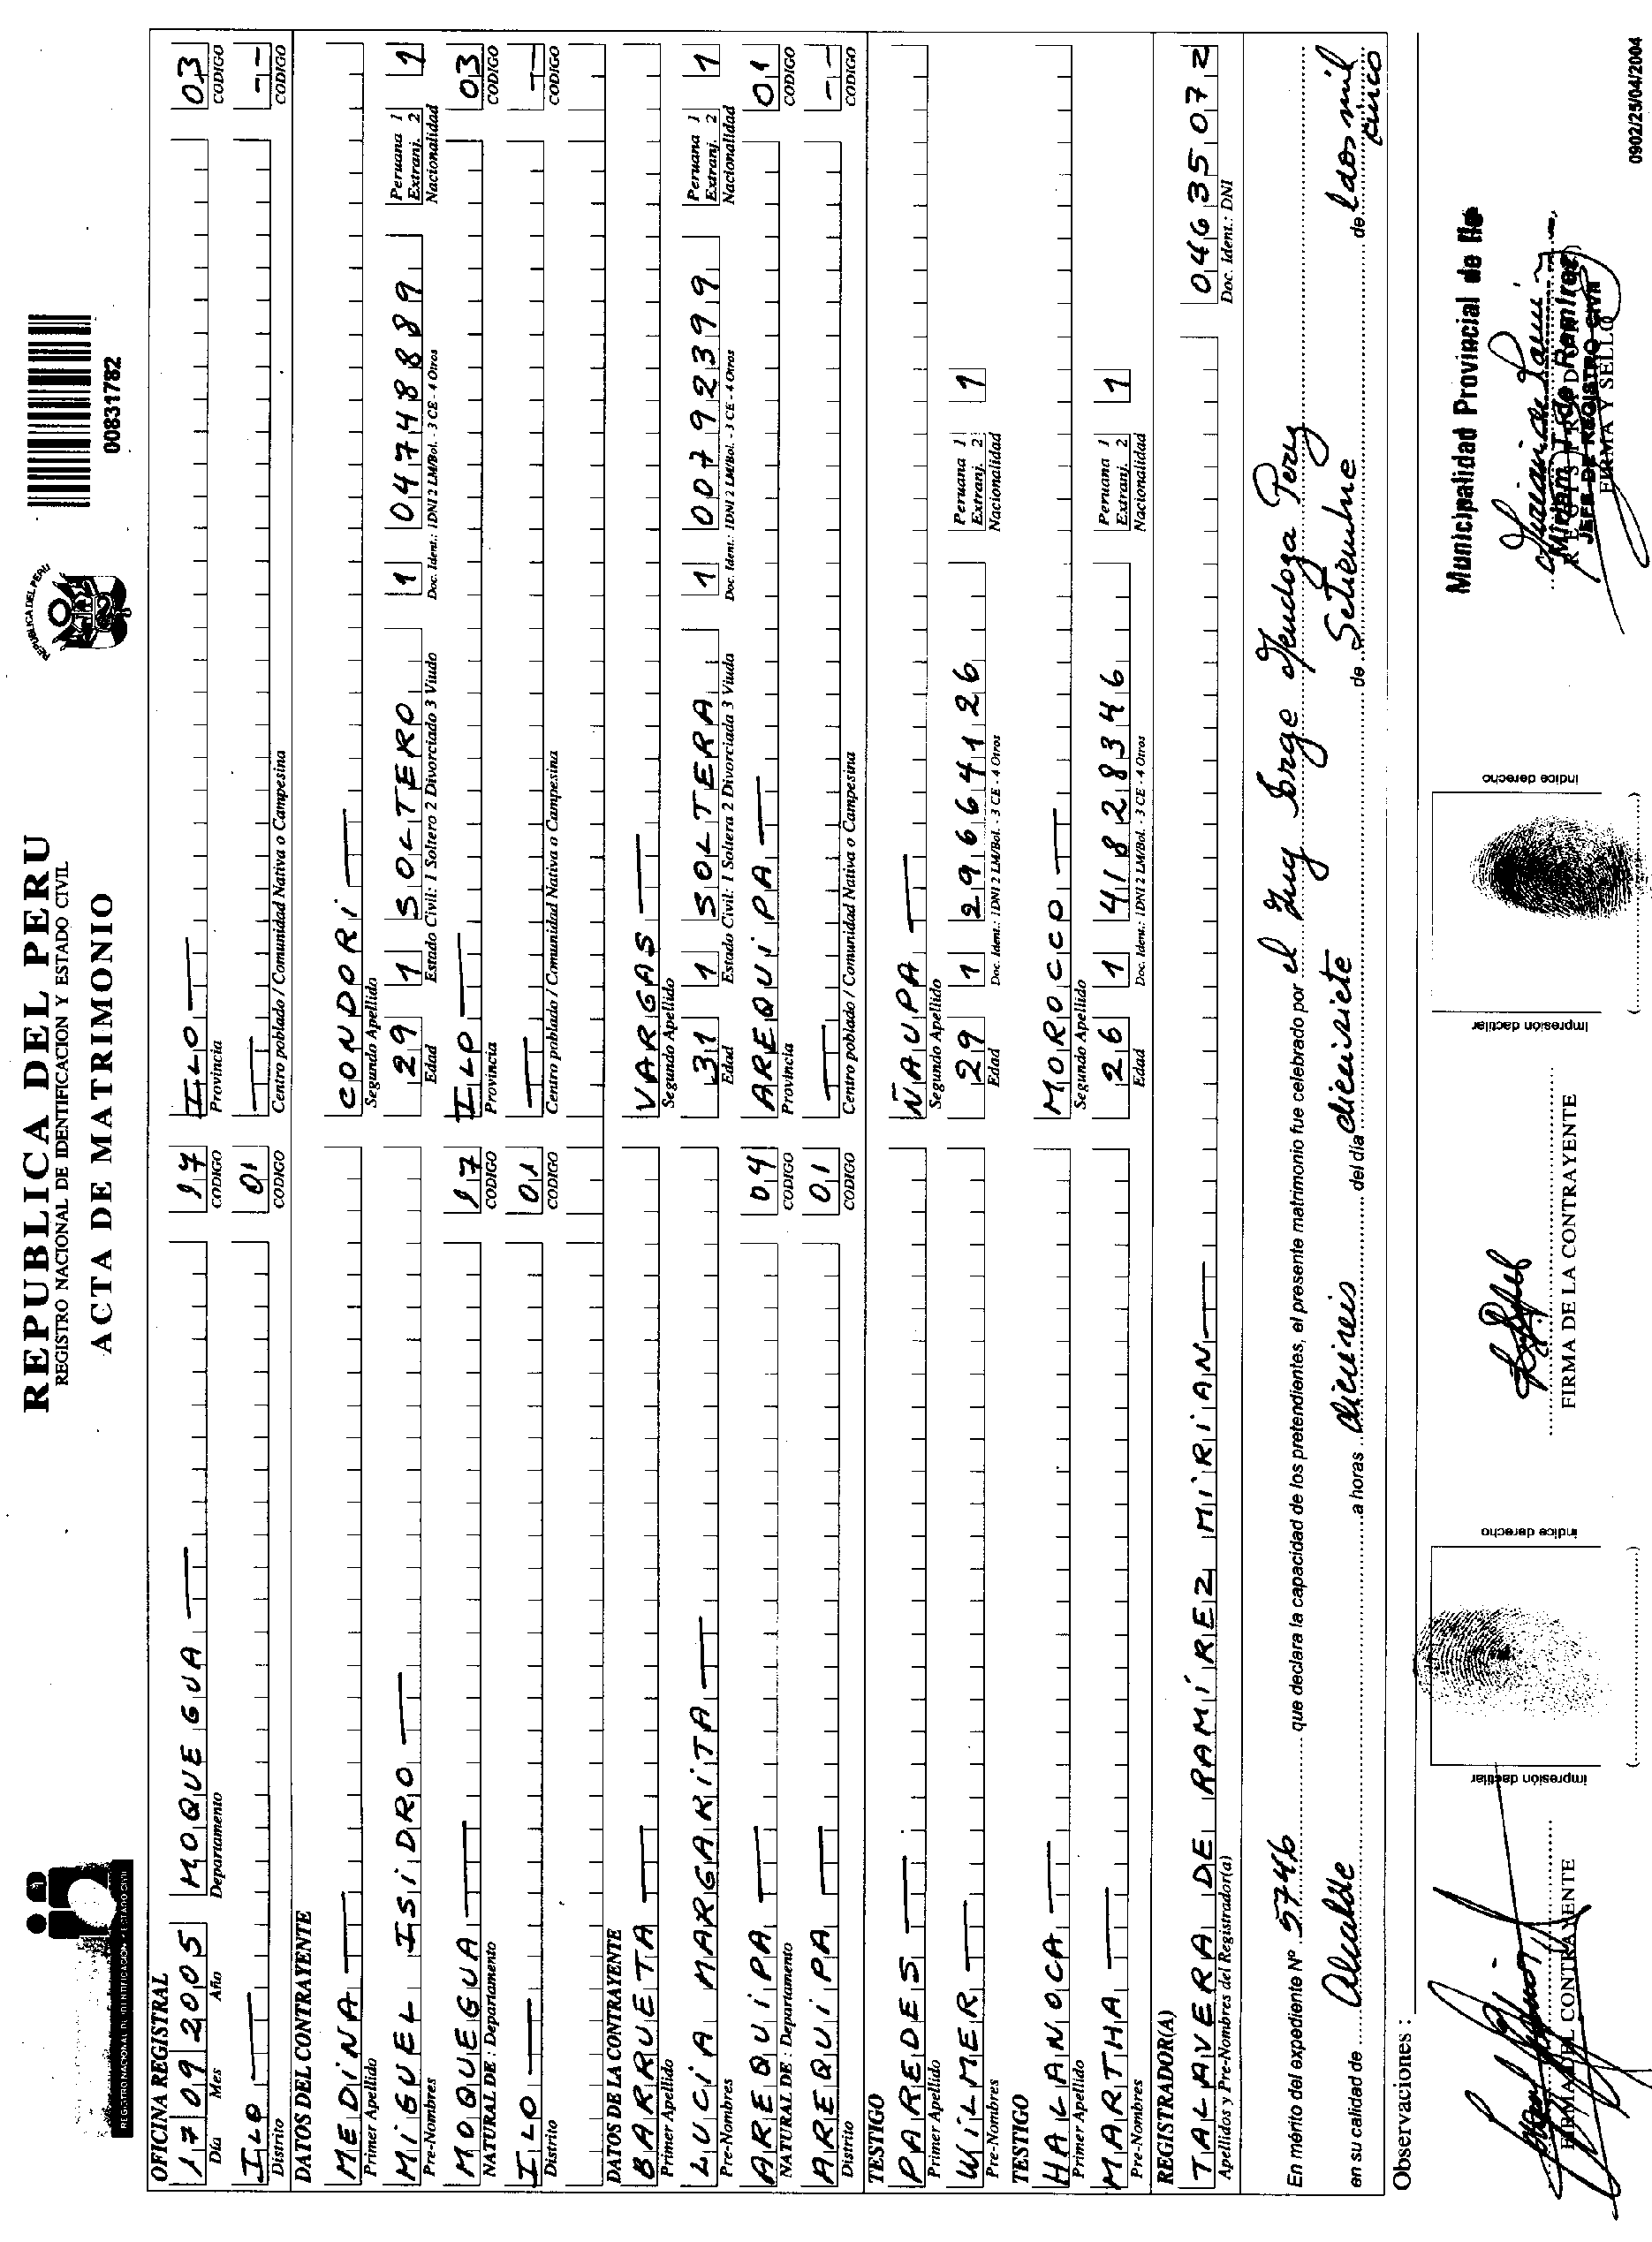 REPUBLICA DEL PERU
REGISTRO NACIONAL DE IDENTIFICACION Y ESTADO CIVIL
ACTA DE MATRIMONIO
REPUBLICA DEL PERU
00831782
REGISTRO NACIONAL DE IDENTIFICACION Y ESTADO CIVIL
OFICINA REGISTRAL
17 09 2005 MOQUEGUA 17 ILO 03
Día Mes Año Departamento CODIGO Provincia CODIGO
ILO 01 --
Distrito CODIGO Centro poblado / Comunidad Nativa o Campesina CODIGO
DATOS DEL CONTRAYENTE
MEDINA CONDORI
Primer Apellido Segundo Apellido
MIGUEL ISIDRO 29 1 SOLTERO 1 04748889 Peruana 1 Extranj. 2 1
Pre-Nombres Edad Estado Civil: 1 Soltero 2 Divorciado 3 Viudo Doc. Ident.: 1DNI 2 LM/Bol. - 3 CE - 4 Otros Nacionalidad
MOQUEGUA 17 ILO 03
NATURAL DE : Departamento CODIGO Provincia CODIGO
ILO 01 --
Distrito CODIGO Centro poblado / Comunidad Nativa o Campesina CODIGO
DATOS DE LA CONTRAYENTE
BARRUETA VARGAS
Primer Apellido Segundo Apellido
LUCIA MARGARITA 31 1 SOLTERA 1 00792399 Peruana 1 Extranj. 2 1
Pre-Nombres Edad Estado Civil: 1 Soltera 2 Divorciada 3 Viuda Doc. Ident.: 1DNI 2 LM/Bol. - 3 CE - 4 Otros Nacionalidad
AREQUIPA 04 AREQUIPA 01
NATURAL DE : Departamento CODIGO Provincia CODIGO
AREQUIPA 01 --
Distrito CODIGO Centro poblado / Comunidad Nativa o Campesina CODIGO
TESTIGO
PAREDES ÑAUPA
Primer Apellido Segundo Apellido
WILMER 29 1 29664126 Peruana 1 Extranj. 2 1
Pre-Nombres Edad Doc. Ident.: 1DNI 2 LM/Bol. - 3 CE - 4 Otros Nacionalidad
TESTIGO
HALANOCA MOROCCO
Primer Apellido Segundo Apellido
MARTHA 26 1 41828346 Peruana 1 Extranj. 2 1
Pre-Nombres Edad Doc. Ident.: 1DNI 2 LM/Bol. - 3 CE - 4 Otros Nacionalidad
REGISTRADOR(A)
TALAVERA DE RAMÍREZ MIRIAN 04635072
Apellidos y Pre-Nombres del Registrador(a) Doc. Ident.: DNI
En mérito del expediente Nº 5746 que declara la capacidad de los pretendientes, el presente matrimonio fue celebrado por el Ing Jorge Mendoza Perez
en su calidad de Alcalde a horas dieciseis del día diecisiete de Setiembre de l dos mil cinco
Observaciones :
Municipalidad Provincial de Ilo
FIRMA DEL CONTRAYENTE
impresión dactilar
índice derecho
FIRMA DE LA CONTRAYENTE
impresión dactilar
índice derecho
JEFE DE REGISTRO CIVIL
FIRMA Y SELLO
0902/25/04/2004